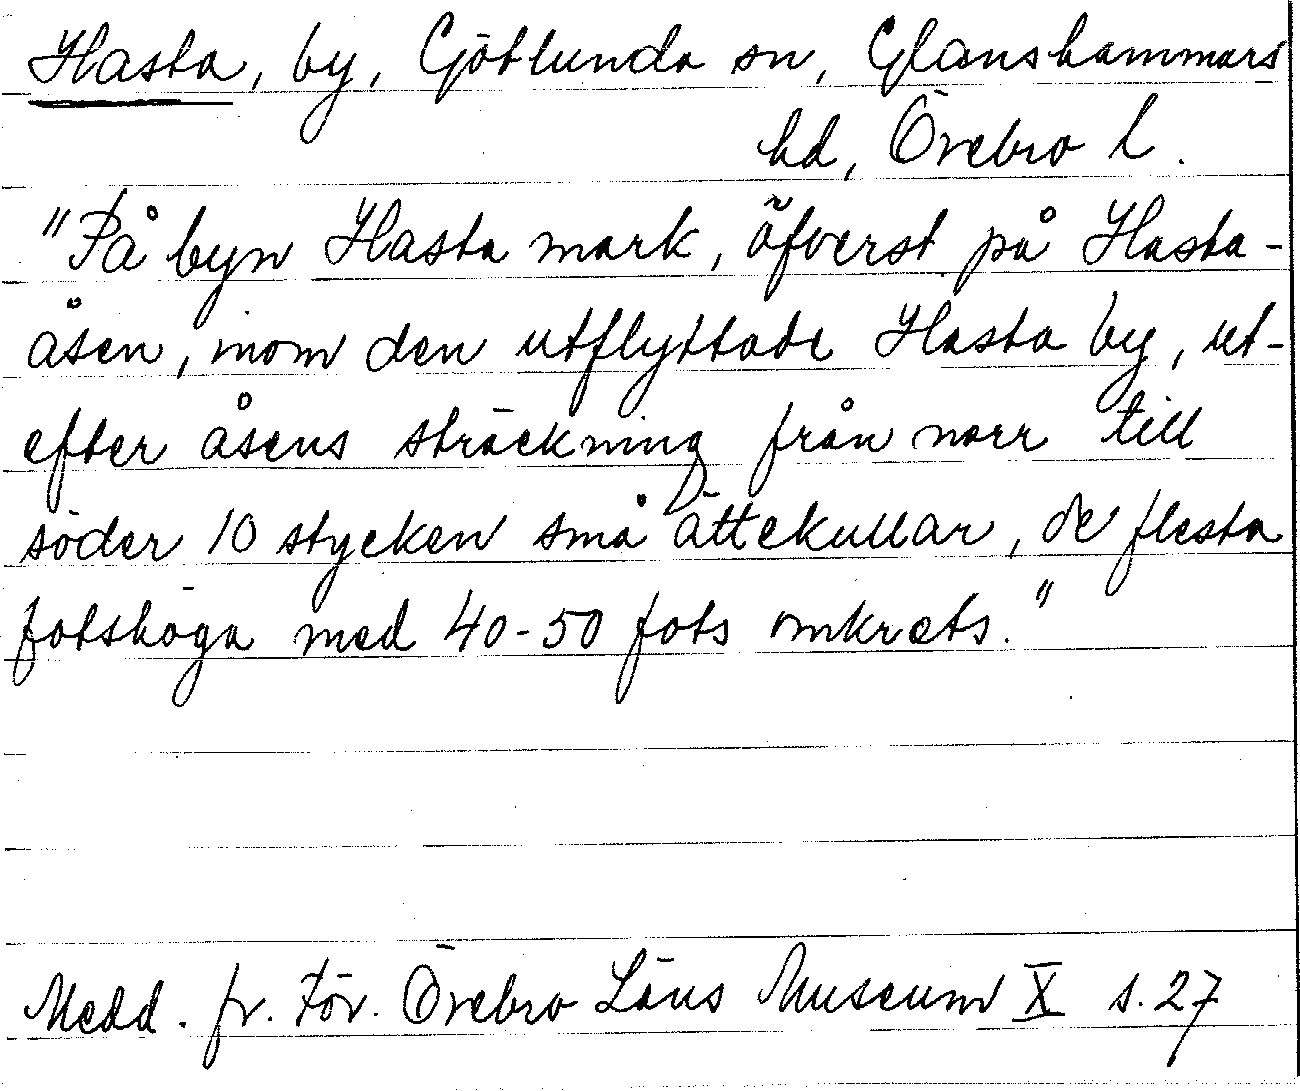 Hasta, by, Götlunda sn, Glanshammars
hd, Örebro l.
"På byn Hasta mark, öfverst på Hasta-
åsen, inom den utflyttade Hasta by, ut-
efter åsens sträckning från norr till
söder 10 stycken små Ättekullar, de flesta
fotshöga med 40-50 fots omkrets."
Medd. fr. För. Örebro Läns Museum X s. 27